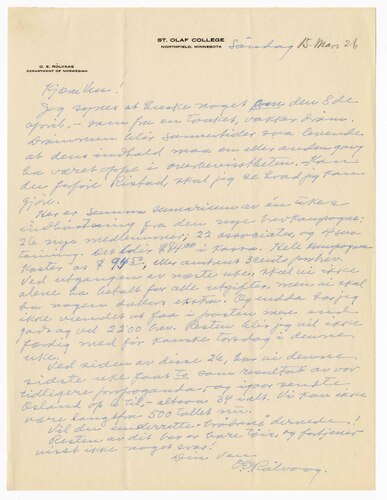 ST. OLAF COLLEGE
NORTHFIELD, MINNESOTA
Søndag 15. Mars 26
O. E. RÖLVAAG
DEPARTMENT OF NORWEGIAN
Kjære Ven!
Jeg synes at huske noget om den 8de
april, – som fra en taaket, vakker drøm.
Drømmen blir sammetider saa levende
at dens indhold maa en eller anden gang
ha været oppe i overbevisstheten. Kan
du Ristad, skal jeg se hvad jeg kan
gjøre.
Her er Summa Summarum av en ukes
indhøstning fra den nye
26 nye medlemmer, 22 associates, og 4
Det blir $84.00 i kassa. Hele kampagnen
koster os $94.50, eller
Ved utgangen av næste uke, skal vi ikke
alene ha betalt for alle utgifter, men vi skal
ha nogen dollars ekstra. Og endda har jeg
ikke vundet at faa i posten mer end
vel 2200 brev. Resten blir jeg vel ikke
færdig med før kanske torsdag i denne
uke.
Ved siden av disse 26, har vi denne
sidste uke faat som resultat av vor
tidligere propaganda, og sendte
Osland op 2 til – altsaa 34 ialt. Vi kan ikke
være langt fra 500 tallet nu.
Vil du underrette "brødrene" derude!
Resten av dit brev er bare tøis, og fortjener
visst ikke noget svar!
Din ven
O E Rølvaag